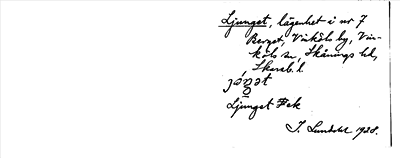 Ljunget, lägenhet i nr 7
Berget, Vinköls by, Vin-
köls sn, Skånings hd,
Skarab. l.
Ljunget Fsk
J. Lundahl 1928.